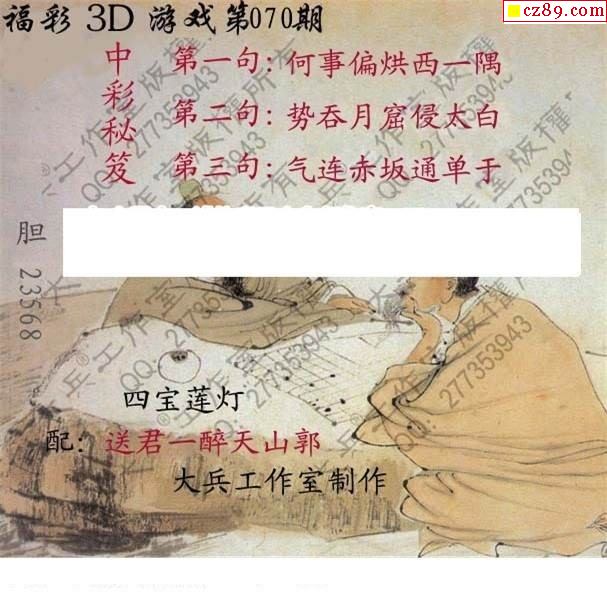 福彩 3D 游戏第070期
cz89.com
中彩秘笈
第一句：何事偏烘西一隅
第二句：势吞月窟侵太白
第三句：气连赤坂通单于
胆 23568
四宝莲灯
配：送君一醉天山郭
大兵工作室制作
大兵®工作室版權所有
QQ:277353943